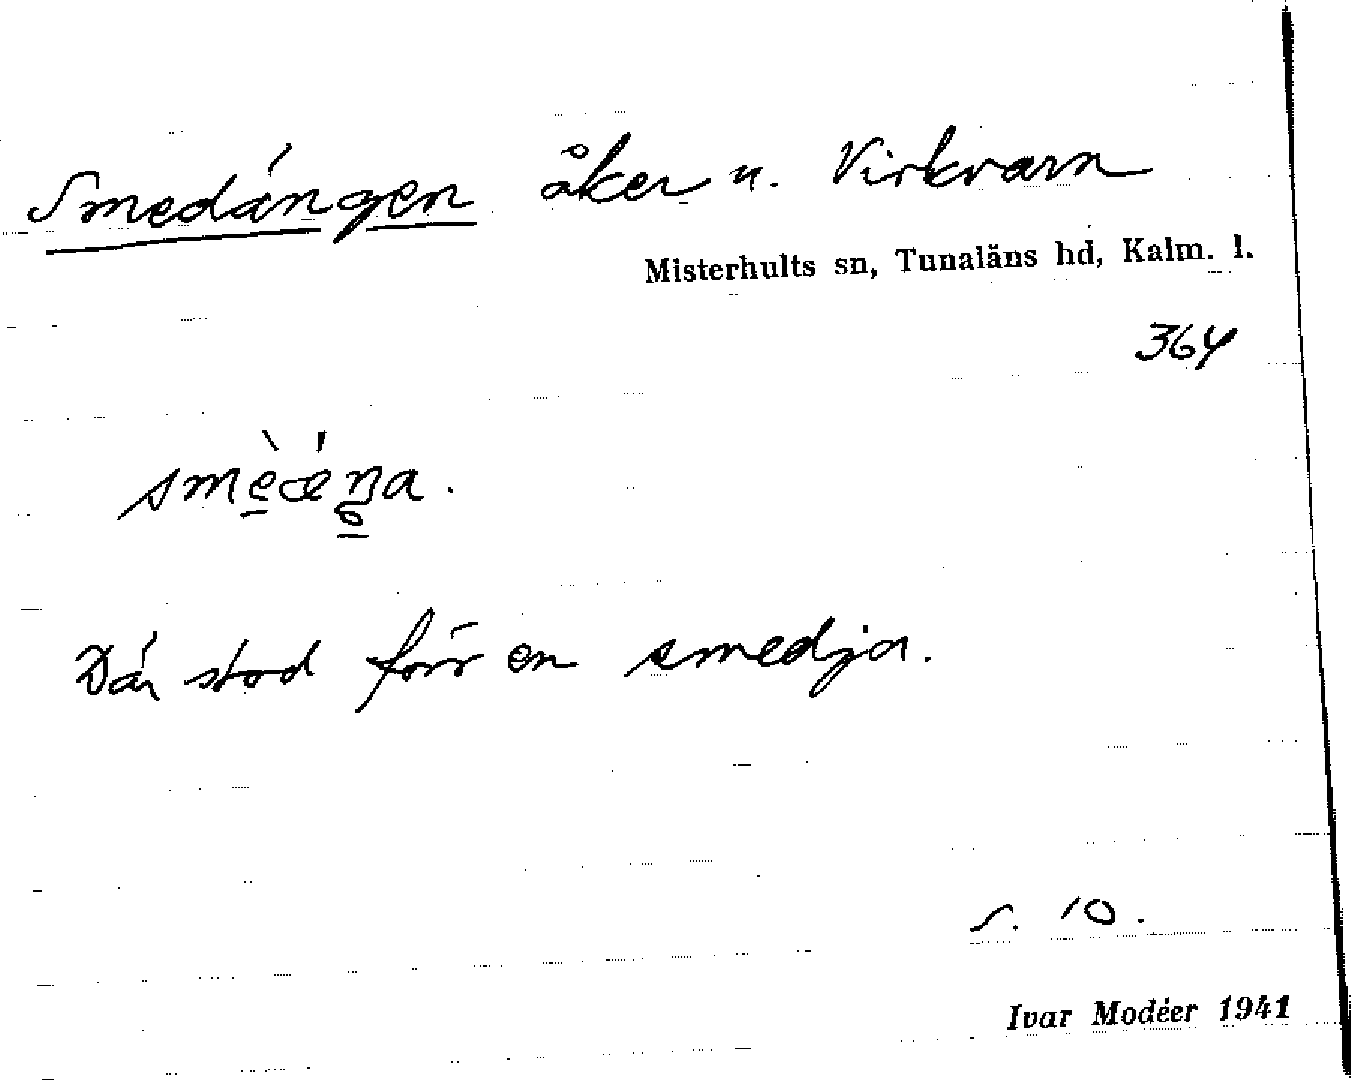 Smedängen åker u. Virkvarn
Misterhults sn, Tunaläns hd, Kalm. l.
364
Där stod förr en smedja.
s. 10.
Ivar Modéer 1941